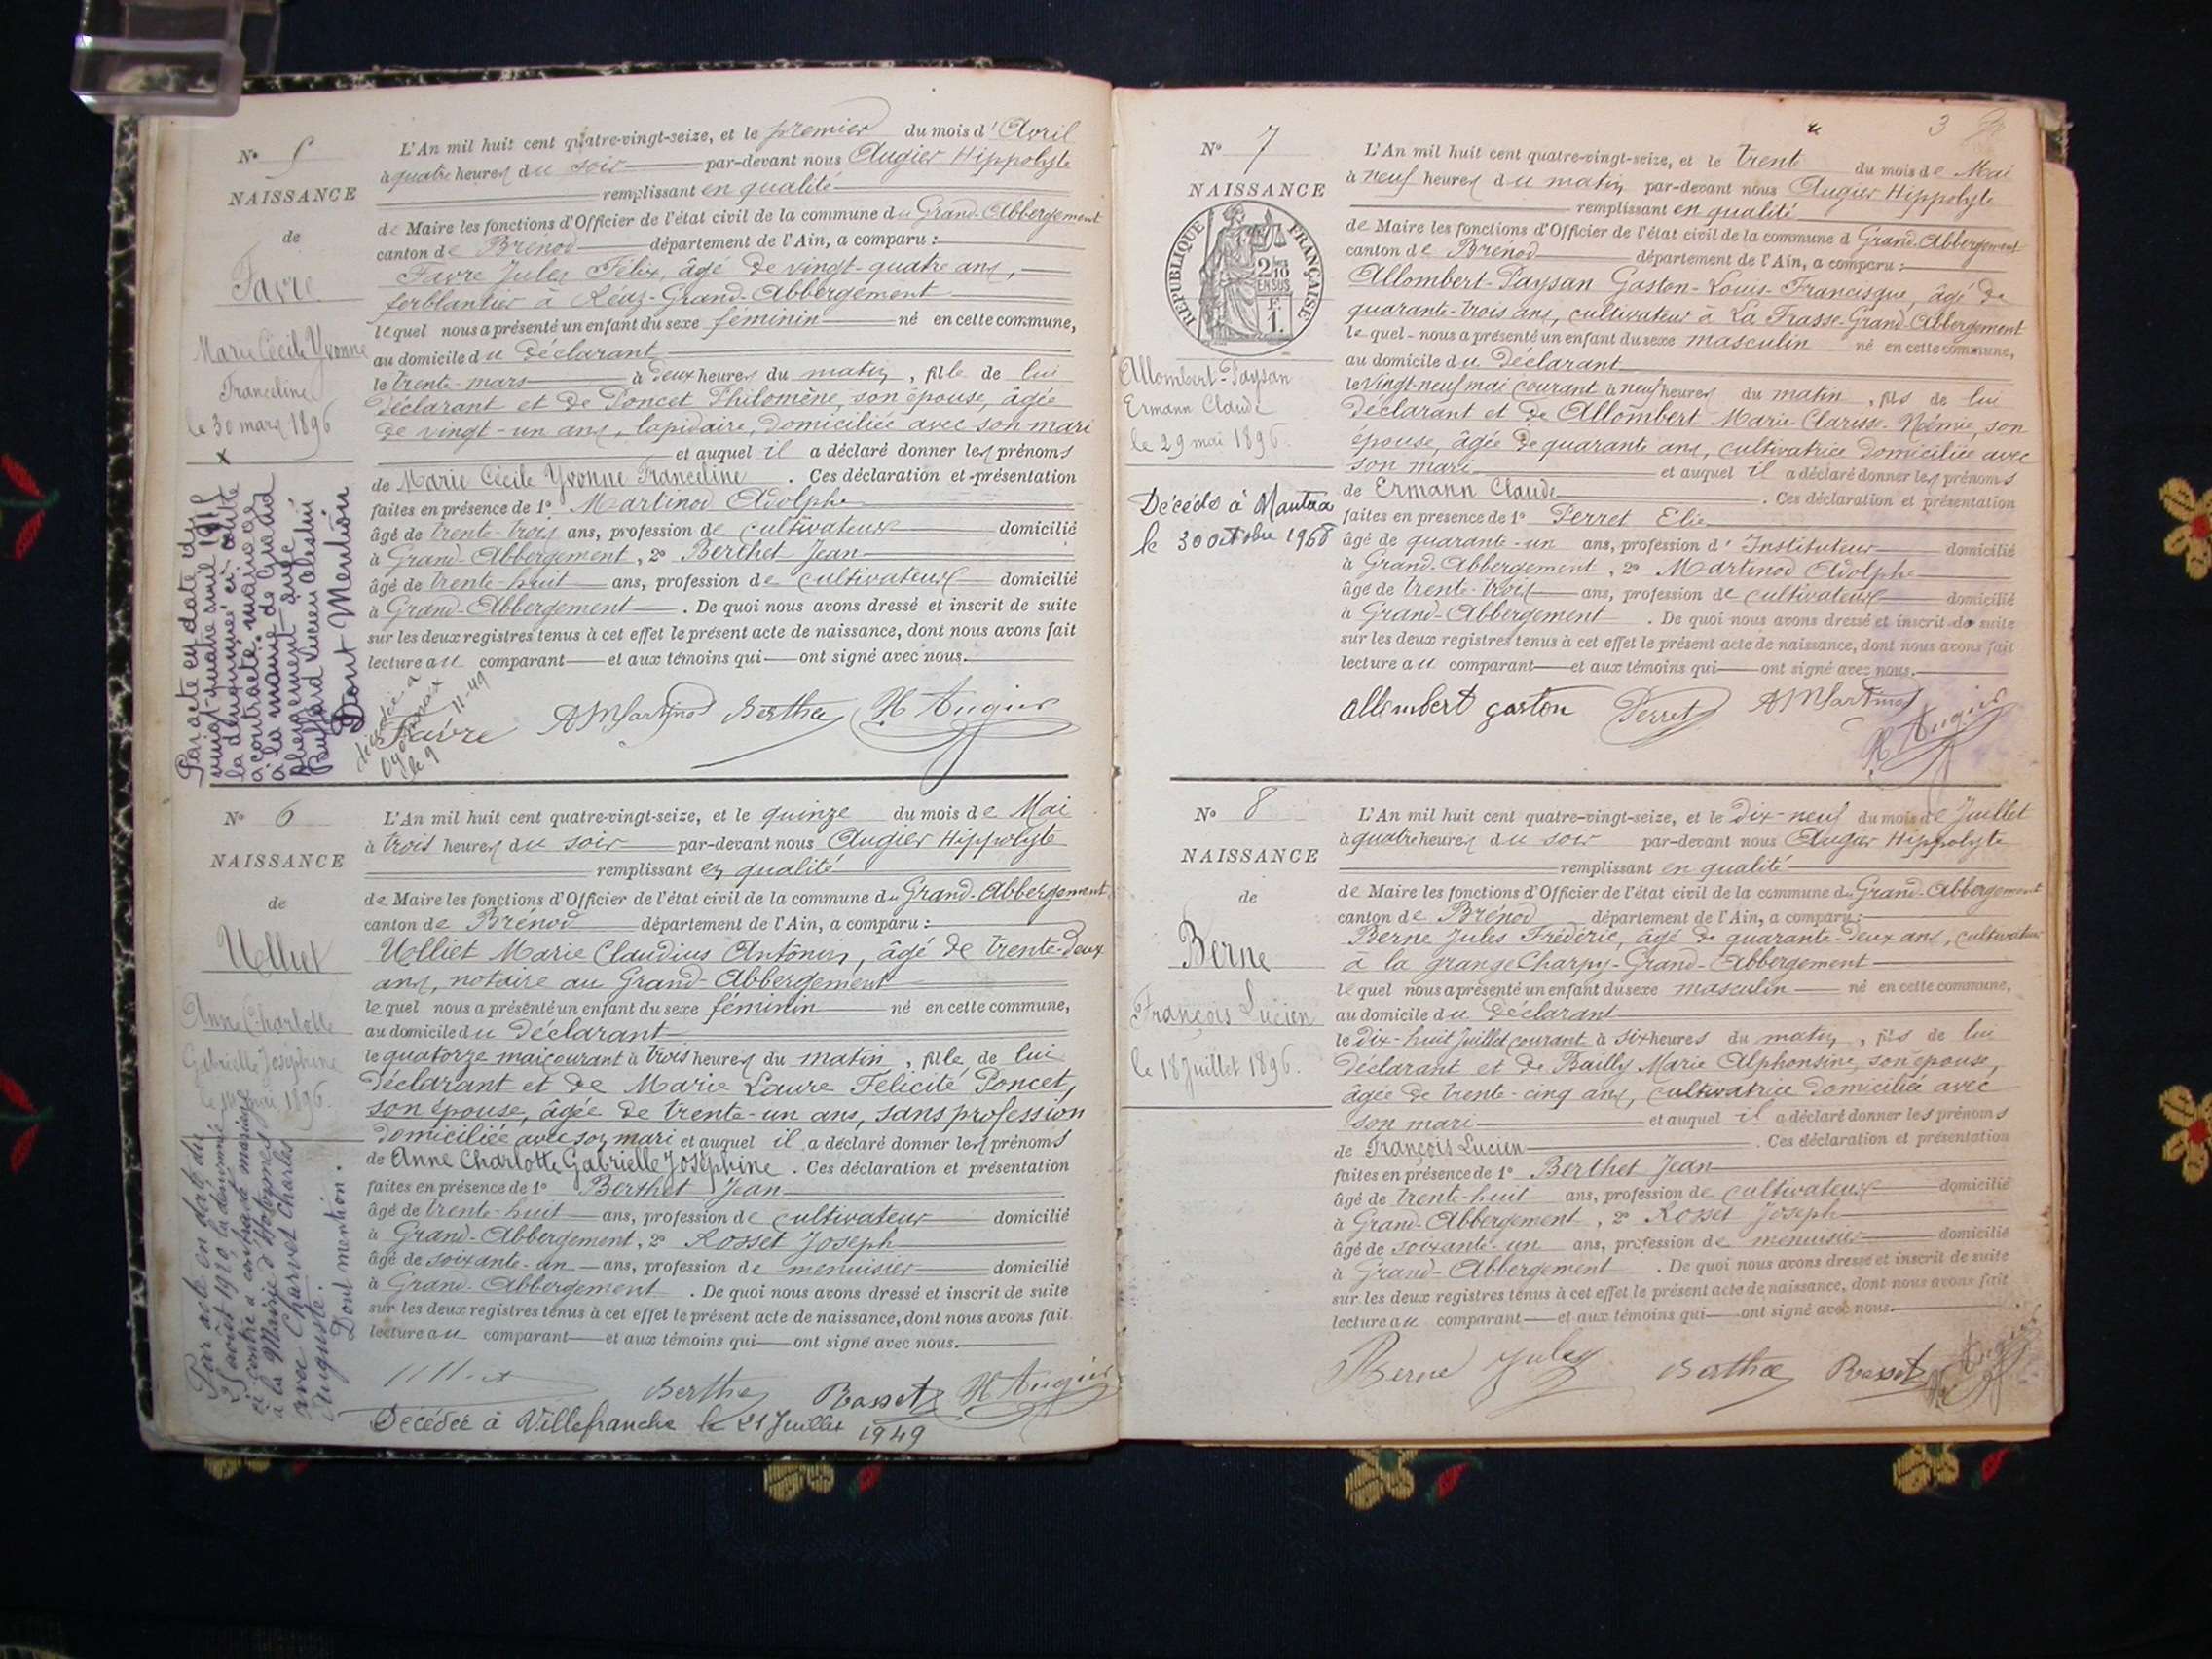 N° 5
NAISSANCE
de
Favre
Marie Cécile Yvonne
Franceline
le 30 mars 1896
Par acte en date du
vingt-quatre avril 1915
la dénommée ci-contre
a contracté mariage
à la mairie de Grand
Abergement avec
Buffard Lucien
Dont Mention
L'An mil huit cent quatre-vingt-seize, et le premier du mois d'Avril
à quatre heures du soir par-devant nous Augier Hippolyte
remplissant en qualité
de Maire les fonctions d'Officier de l'état civil de la commune du Grand-Abbergement
canton de Brénod département de l'Ain, a comparu :
Favre Jules Félix, âgé de vingt-quatre ans,
ferblantier à Grand-Abbergement
lequel nous a présenté un enfant du sexe féminin né en cette commune,
au domicile du déclarant
le trente mars à deux heures du matin, fille de lui
déclarant et de Poncet Philomène, son épouse, âgée
de vingt-un ans, lapidaire, domiciliée avec son mari
et auquel il a déclaré donner les prénoms
de Marie Cécile Yvonne Franceline. Ces déclaration et présentation
faites en présence de 1° Martinod Adolphe
âgé de trente-trois ans, profession de cultivateur domicilié
à Grand-Abbergement, 2° Berthet Jean
âgé de trente-huit ans, profession de cultivateur domicilié
à Grand-Abbergement. De quoi nous avons dressé et inscrit de suite
sur les deux registres tenus à cet effet le présent acte de naissance, dont nous avons fait
lecture au comparant et aux témoins qui ont signé avec nous.
décédée à
Oyonnax
le 9-11-49
Favre AMartinod Berthet H Augier
N° 6
NAISSANCE
de
Uelliet
Anne Charlotte
Gabrielle Joséphine
le 14 mai 1896.
Par acte en date du
août 1920, la dénommée
ci-contre a contracté mariage
à la Mairie d'Hotonnes
avec Charvet Charles
Auguste.
Dont mention.
L'An mil huit cent quatre-vingt-seize, et le quinze du mois de Mai
à trois heures du soir par-devant nous Augier Hippolyte
remplissant en qualité
de Maire les fonctions d'Officier de l'état civil de la commune du Grand-Abbergement
canton de Brénod département de l'Ain, a comparu :
Uelliet Marie Claudius Antonin, âgé de trente-deux
ans, notaire au Grand-Abbergement
lequel nous a présenté un enfant du sexe féminin né en cette commune,
au domicile du déclarant
le quatorze mai courant à trois heures du matin, fille de lui
déclarant et de Marie Laure Félicité Poncet,
son épouse, âgée de trente-un ans, sans profession
domiciliée avec son mari et auquel il a déclaré donner les prénoms
de Anne Charlotte Gabrielle Joséphine. Ces déclaration et présentation
faites en présence de 1° Berthet Jean
âgé de trente-huit ans, profession de cultivateur domicilié
à Grand-Abbergement, 2° Rosset Joseph
âgé de soixante-un ans, profession de menuisier domicilié
à Grand-Abbergement. De quoi nous avons dressé et inscrit de suite
sur les deux registres tenus à cet effet le présent acte de naissance, dont nous avons fait
lecture au comparant et aux témoins qui ont signé avec nous.
Berthet Rosset H Augier
Décédée à Villefranche le 21 Juillet 1949
3
N° 7
NAISSANCE
RÉPUBLIQUE FRANÇAISE
2/10 EN SUS
F. 1.
Allombert-Paysan
Ermann Claude
le 29 mai 1896.
Décédé à Nantua
le 30 octobre 1968
L'An mil huit cent quatre-vingt-seize, et le trente du mois de Mai
à neuf heures du matin par-devant nous Augier Hippolyte
remplissant en qualité
de Maire les fonctions d'Officier de l'état civil de la commune d Grand-Abbergement
canton de Brénod département de l'Ain, a comparu :
Allombert-Paysan Gaston-Louis-Francisque, âgé de
quarante-trois ans, cultivateur à La Frasse-Grand-Abbergement
lequel nous a présenté un enfant du sexe masculin né en cette commune,
au domicile du déclarant
le vingt-neuf mai courant à neuf heures du matin, fils de lui
déclarant et de Allombert Marie-Clarisse-Noémie, son
épouse, âgée de quarante ans, cultivatrice domiciliée avec
son mari et auquel il a déclaré donner les prénoms
de Ermann Claude. Ces déclaration et présentation
faites en présence de 1° Perret Elie
âgé de quarante-un ans, profession d'Instituteur domicilié
à Grand-Abbergement, 2° Martinod Adolphe
âgé de trente-trois ans, profession de cultivateur domicilié
à Grand-Abbergement. De quoi nous avons dressé et inscrit de suite
sur les deux registres tenus à cet effet le présent acte de naissance, dont nous avons fait
lecture au comparant et aux témoins qui ont signé avec nous.
Allombert gaston Perret AMartinod
H Augier
N° 8
NAISSANCE
de
Berne
François Lucien
le 18 Juillet 1896.
L'An mil huit cent quatre-vingt-seize, et le dix-neuf du mois de Juillet
à quatre heures du soir par-devant nous Augier Hippolyte
remplissant en qualité
de Maire les fonctions d'Officier de l'état civil de la commune du Grand-Abbergement
canton de Brénod département de l'Ain, a comparu :
Berne Jules Frédéric, âgé de quarante-deux ans, cultivateur
à la grange Charpy-Grand-Abbergement
lequel nous a présenté un enfant du sexe masculin né en cette commune,
au domicile du déclarant
le dix-huit Juillet courant à six heures du matin, fils de lui
déclarant et de Bailly Marie Alphonsine, son épouse,
âgée de trente-cinq ans, cultivatrice domiciliée avec
son mari et auquel il a déclaré donner les prénoms
de François Lucien. Ces déclaration et présentation
faites en présence de 1° Berthet Jean
âgé de trente-huit ans, profession de cultivateur domicilié
à Grand-Abbergement, 2° Rosset Joseph
âgé de soixante-un ans, profession de menuisier domicilié
à Grand-Abbergement. De quoi nous avons dressé et inscrit de suite
sur les deux registres tenus à cet effet le présent acte de naissance, dont nous avons fait
lecture au comparant et aux témoins qui ont signé avec nous.
Berne Jules Berthet Rosset H Augier